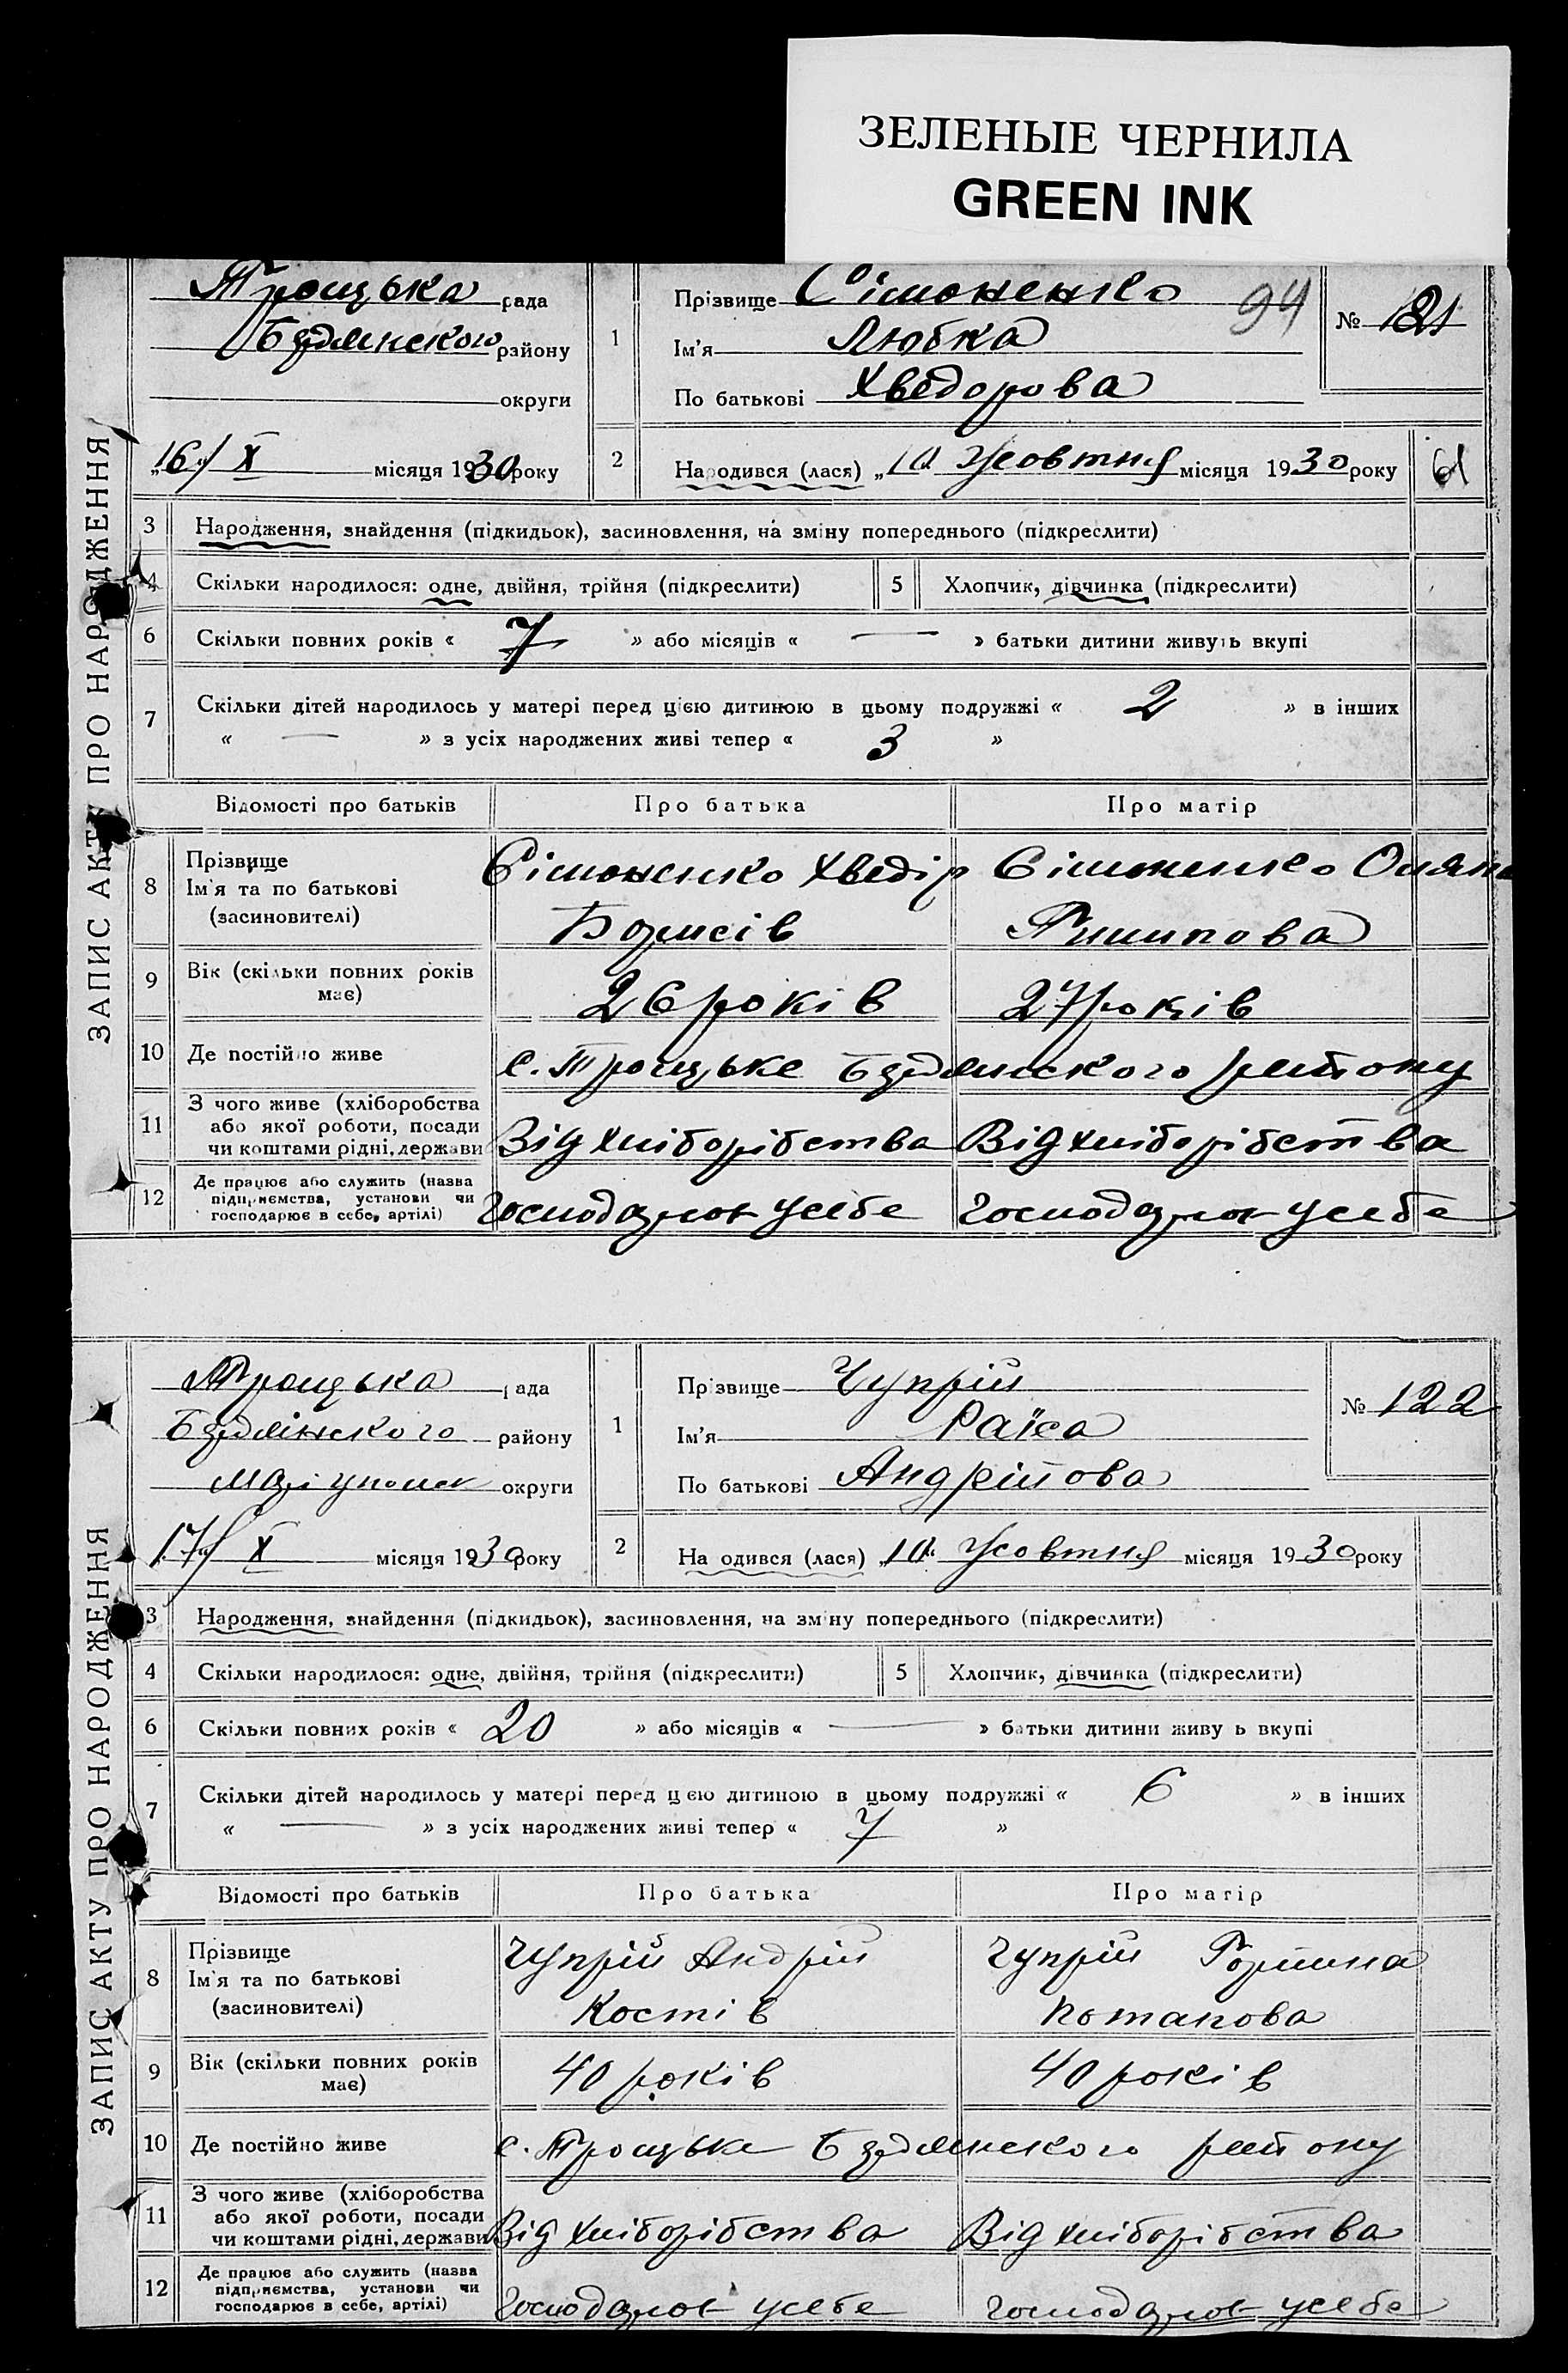 ЗЕЛЕНЫЕ ЧЕРНИЛА
GREEN INK
ЗАПИС АКТУ ПРО НАРОДЖЕННЯ
Троцька рада
району
округи
"16" X місяця 1930 року
1
Прізвище Сімоненко 94
Ім'я Любка
По батькові Хведорова
№ 121
2
Народився (лася) „10" Жовтня місяця 1930 року
61
3 Народження, знайдення (підкидьок), засиновлення, на зміну попереднього (підкреслити)
4 Скільки народилося: одне, двійня, трійня (підкреслити) 5 Хлопчик, дівчинка (підкреслити)
6 Скільки повних років « 7 » або місяців « — » батьки дитини живуть вкупі
7 Скільки дітей народилось у матері перед цією дитиною в цьому подружжі « 2 » в інших
« — » з усіх народжених живі тепер « 3 »
Відомості про батьків Про батька Про матір
8 Прізвище
Ім'я та по батькові
(засиновителі)
Сімоненко Хведір
Борисів
Сімоненко
9 Вік (скільки повних років
має)
26 років 27 років
10 Де постійно живе с. Троцьке району
11 З чого живе (хліборобства
або якої роботи, посади
чи коштами рідні, держави
Від хліборібства Від хліборібства
12 Де працює або служить (назва
підприємства, установи чи
господарює в себе, артілі)
Господарює усебе Господарює усебе
ЗАПИС АКТУ ПРО НАРОДЖЕННЯ
Троцька рада
району
округи
17" X місяця 1930 року
1
Прізвище Чупрій
Ім'я Раїса
По батькові Андрійова
№ 122
2
Народився (лася) „10" Жовтня місяця 1930 року
3 Народження, знайдення (підкидьок), засиновлення, на зміну попереднього (підкреслити)
4 Скільки народилося: одне, двійня, трійня (підкреслити) 5 Хлопчик, дівчинка (підкреслити)
6 Скільки повних років « 20 » або місяців « — » батьки дитини живуть вкупі
7 Скільки дітей народилось у матері перед цією дитиною в цьому подружжі « 6 » в інших
« — » з усіх народжених живі тепер « 7 »
Відомості про батьків Про батька Про матір
8 Прізвище
Ім'я та по батькові
(засиновителі)
Чупрій Андрій
Костів
Чупрій
Потапова
9 Вік (скільки повних років
має)
40 років 40 років
10 Де постійно живе с. Троцьке району
11 З чого живе (хліборобства
або якої роботи, посади
чи коштами рідні, держави
Від хліборібства Від хліборібства
12 Де працює або служить (назва
підприємства, установи чи
господарює в себе, артілі)
Господарює усебе Господарює усебе